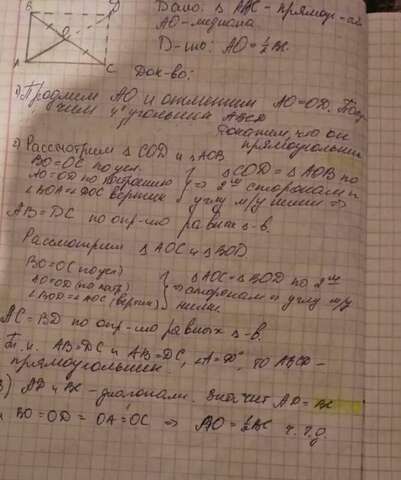 B
D
O
A
C
Дано: △ ABC - прямоуг-ый
AO - медиана.
D-ть: AO = ½ BC.
Док-во:
1) Продлим AO и отметим AO = OD. Полу-
чим 4-угольник ABCD
Докажем, что он
прямоугольник
2) Рассмотрим △ COD и △ AOB
BO = OC по усл.
AO = OD по построению
∠BOA = ∠DOC вертик
} => △COD = △AOB по
2ум сторонам и
углу м/у ними =>
AB = DC по опр-ию равных △-в.
Рассмотрим △ AOC и △ BOD
BO = OC по усл)
AO = OD (по постр)
∠ BOD = ∠ AOC (вертик)
} => △AOC = △BOD по 2ум
сторонам и углу м/у
ними.
AC = BD по опр-ию равных △-в.
Т. к. AB = DC и AB = DC, ∠A = 90°, то ABCD -
прямоугольник.
3) AD и BC - диагонали. Значит AD = BC
и BO = OD = OA = OC => AO = ½ BC ч. т. д.